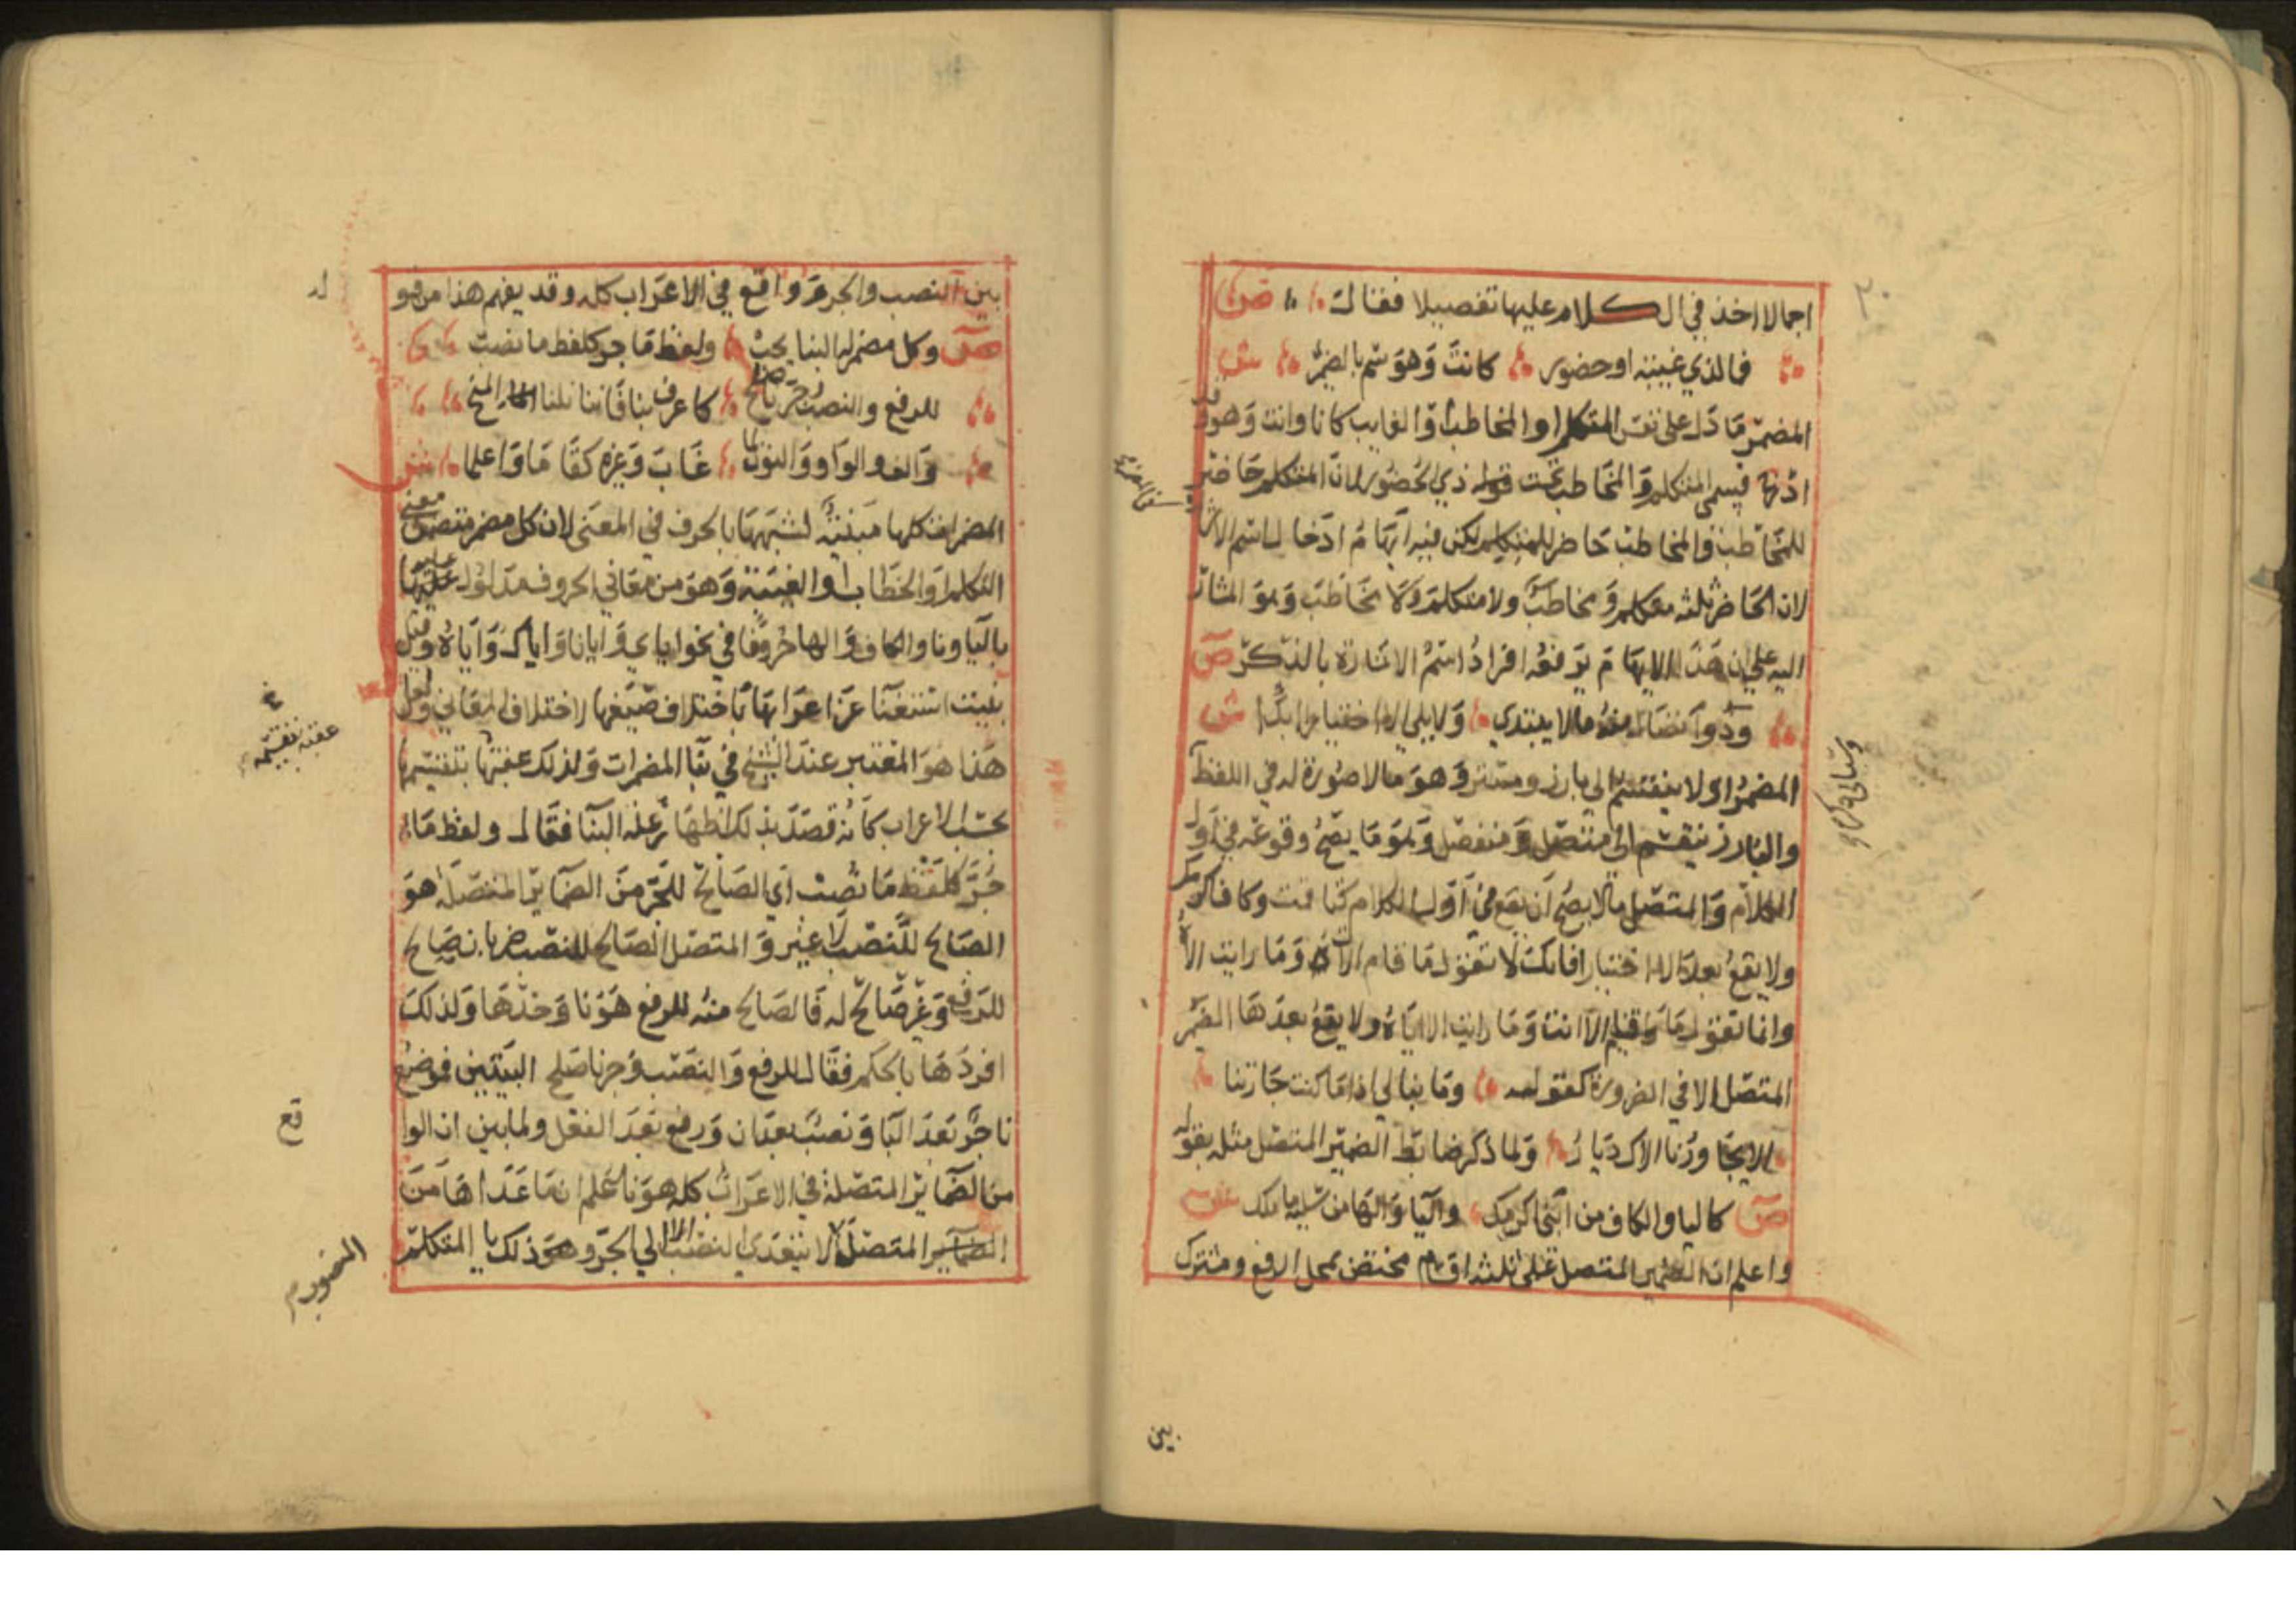 ٢٠
اجمالا اخذ في الكلام عليها تفصيلا فقال ص
فما لذي غيبة او حضور كانت وهو سم بالضمير ش
المضمر ما دل على نفس المتكلم او المخاطب او الغايب كانا وانت وهو وقد
ادرج قسمي المتكلم والمخاطب تحت قوله ذي الحضور لان المتكلم حاضر
للمخاطب والمخاطب حاضر للمتكلم لكن فيه ابهام ادخال اسم الاشا
لان الحاضر ثلثة متكلم ومخاطب ولا متكلم ولا مخاطب وهو المشار
اليه على ان هذا الابهام يرفعه افراد اسم الاشارة بالذكر ص
وذو اتصال منه ما لا يبتدي ولا يلي الا اختيارا ابدا ش
المضمر اولا ينقسم الى بارز ومستتر وهو ما لا صورة له في اللفظ
والبارز ينقسم الى متصل ومنفصل وهو ما يصح وقوعه في اول
الكلام والمتصل ما لا يصح ان يقع في اول الكلام كتا قمت وكاف اكرمك
ولا يقع بعد الا اختيارا فانك لا تقول ما قام الات وما رايت الاه
وانما تقول ما قام الا انت وما رايت الا اياه ولا يقع بعدها الضمير
المتصل الا في الضرورة كقوله وما نبالي اذا ما كنت جارتنا
الا يجاورنا الاك ديار ولما ذكر ضابط الضمير المتصل مثله بقوله
ص كاليا والكاف من ابني اكرمك واليا والها من سليه ما ملك ش
واعلم ان الضمير المتصل على ثلثة اقسام مختص بمحل الرفع ومشترك
بين
بين النصب والجر وواقع في الاعراب كله وقد يفهم هذا من قو
له
ص وكل مضمر له البنا يجب ولفظ ما جر كلفظ ما نصب
للرفع والنصب وجر نا صلح كاعرف بنا فاننا نلنا المنح
والف والواو والنون لما غاب وغيره كقاما واعلما ش
المضمرات كلها مبنية لشبهها بالحرف في المعنى لان كل مضمر متضمن معنى
التكلم او الخطاب او الغيبة وهو من معاني الحروف مدلول عليها
باليا ونا والكاف والها حروفا في نحو اياي وايانا واياك واياه وقيل
بنيت استغنا عن اعرابها باختلاف صيغها لاختلاف المعاني ولعل
هذا هو المعتبر عند الشيخ في بنا المضمرات ولذلك عقبها بتقسيمها
عقبه بتقسيمه
بحسب الاعراب كانه قصد بذلك اظهار علة البنا فقال ولفظ ما
جر كلفظ ما نصب اي الصالح للجر من الضماير المتصلة هو
الصالح للنصب لا غير والمتصل الصالح للنصب ضربان صالح
للرفع وغير صالح له فالصالح منه للرفع هو نا وحدها ولذلك
افردها بالحكم فقال للرفع والنصب وجر نا صلح البيتين فموضع
نا جر بعد البا ونصب بعد ان ورفع بعد الفعل ولما بين ان الوا
قع
من الضماير المتصلة في الاعراب كله هو نا علم ان ما عداها من
الضماير المتصلة لا يتعدى النصب الا الى الجر وهو ذلك يا المتكلم
المنصوب